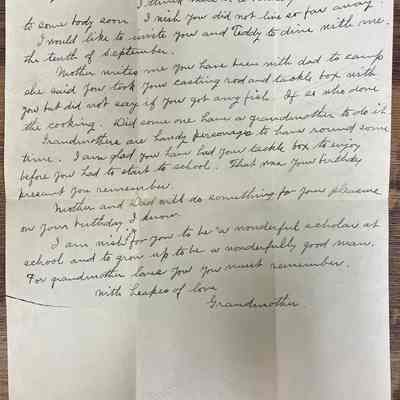 I think
to some body soon. I wish you did not live so far away.
I would like to invite you and Teddy to dine with me.
the tenth of September.
Mother writes me you have been with dad to camp
she said you took your casting rod and tackle box with
you but did not say if you got any fish. If so who done
the cooking. Did some one have a grandmother to do it
Grandmothers are handy personages to have round some
time. I am glad you have had your tackle box to enjoy
before you had to start to school. That was your birthday
present you remember.
Mother and Dad will do something for your pleasure
on your birthday I know.
I am wishing for you to be a wonderful scholar at
school and to grow up to be a wonderfully good man.
For grandmother loves you you must remember.
With heapes of love
Grandmother.